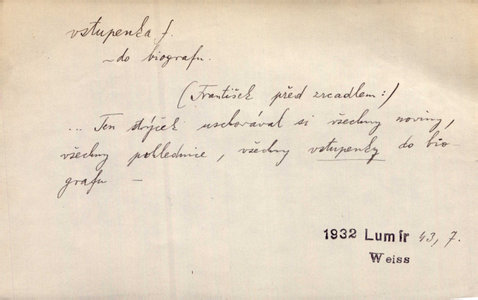 vstupenka f.
~ do biografu.
(František před zrcadlem:)
... Ten strýček uschovával si všechny noviny,
všechny pohlednice, všechny vstupenky do bio-
grafu —
1932 Lumír 43, 7.
Weiss